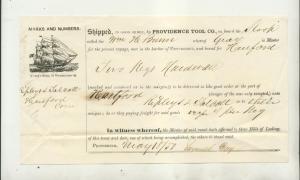 MARKS AND NUMBERS.
Shipped, in good order, by PROVIDENCE TOOL CO., on board the Sloop
called the Wm H Bowen whereof Gray is Master
for the present voyage, now in the harbor of PROVIDENCE, and bound for Hartford
Two Kegs Hardware
Ripley & Talcott
Hartford
Conn
marked and numbered as in the margin) to be delivered in like good order at the port of
Hartford (the danger of the seas only excepted,) unto
Ripley & Talcott or their
assigns; he or they paying freight for said goods per Keg
In witness whereof, the Master of said vessel hath affirmed to three Bills of Lading,
of this tenor and date, one of which being accomplished, the others to stand void.
PROVIDENCE, May 1/58 Gray